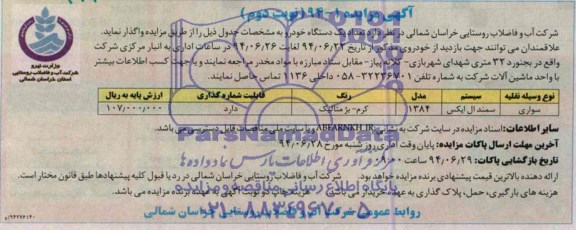 آگهی مزایده ۱-۹۴ (نوبت دوم)
شرکت آب و فاضلاب روستایی خراسان شمالی در نظر دارد تعداد یک دستگاه خودرو به مشخصات جدول ذیل را از طریق مزایده واگذار نماید.
علاقمندان می توانند جهت بازدید از خودروی مذکور از تاریخ ۹۴/۰۶/۲۲ لغایت ۹۴/۰۶/۲۶ در ساعات اداری به انبار مرکزی شرکت
واقع در بجنورد ۳۲ متری شهدای شهربازی- کلاته پیاز- مقابل ستاد مبارزه با مواد مخدر مراجعه نمایند و یا جهت کسب اطلاعات بیشتر
با واحد ماشین آلات شرکت به شماره تلفن ۳۲۲۳۶۷۰۱-۰۵۸ داخلی ۱۱۳۶ تماس حاصل نمایند.
وزارت نیرو
شرکت آب و فاضلاب روستایی
استان خراسان شمالی
نوع وسیله نقلیه سیستم مدل رنگ قابلیت شماره گذاری ارزش پایه به ریال
سواری سمند ال ایکس ۱۳۸۴ کرم- بژ متالیک دارد ۱۰۷/۰۰۰/۰۰۰
سایر اطلاعات: اسناد مزایده در سایت شرکت به نشانی ABFARNKH.IR و یا سایت ملی مناقصات قابل دسترسی می باشد.
آخرین مهلت ارسال پاکات مزایده: پایان وقت اداری روز شنبه مورخ ۹۴/۰۶/۲۸
تاریخ بازگشایی پاکات: ۹۴/۰۶/۲۹ ساعت
ارائه دهنده بالاترین قیمت پیشنهادی برنده مزایده خواهد بود. شرکت آب و فاضلاب روستایی خراسان شمالی در رد یا قبول کلیه پیشنهادها طبق قانون مختار است.
هزینه های بارگیری، حمل، پلاک گذاری به عهده خریدار می باشد. هزینه چاپ دو نوبت آگهی به عهده برنده مزایده می باشد.
روابط عمومی شرکت آب و فاضلاب روستایی خراسان شمالی
ParsNamadData
فرآوری اطلاعات پارس نماد داده ها
پایگاه اطلاع رسانی مناقصه و مزایده
۰۲۱-۸۸۳۴۹۶۷۰-۵